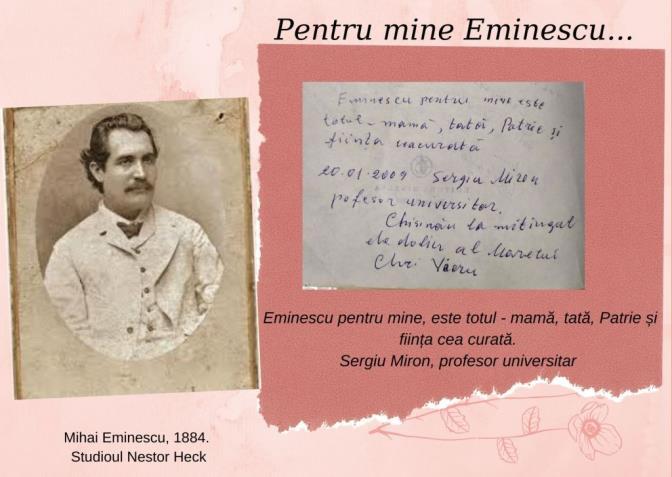 Pentru mine Eminescu...
Eminescu pentru mine este
totul - mamă, tată, Patrie și
ființa ceacurată
20.01.2009 Sergiu Miron
pofesor universitar.
Chisinău la mitingul
de doliu al Marelui
Mihai Eminescu, 1884.
Studioul Nestor Heck
Eminescu pentru mine, este totul - mamă, tată, Patrie și
ființa cea curată.
Sergiu Miron, profesor universitar